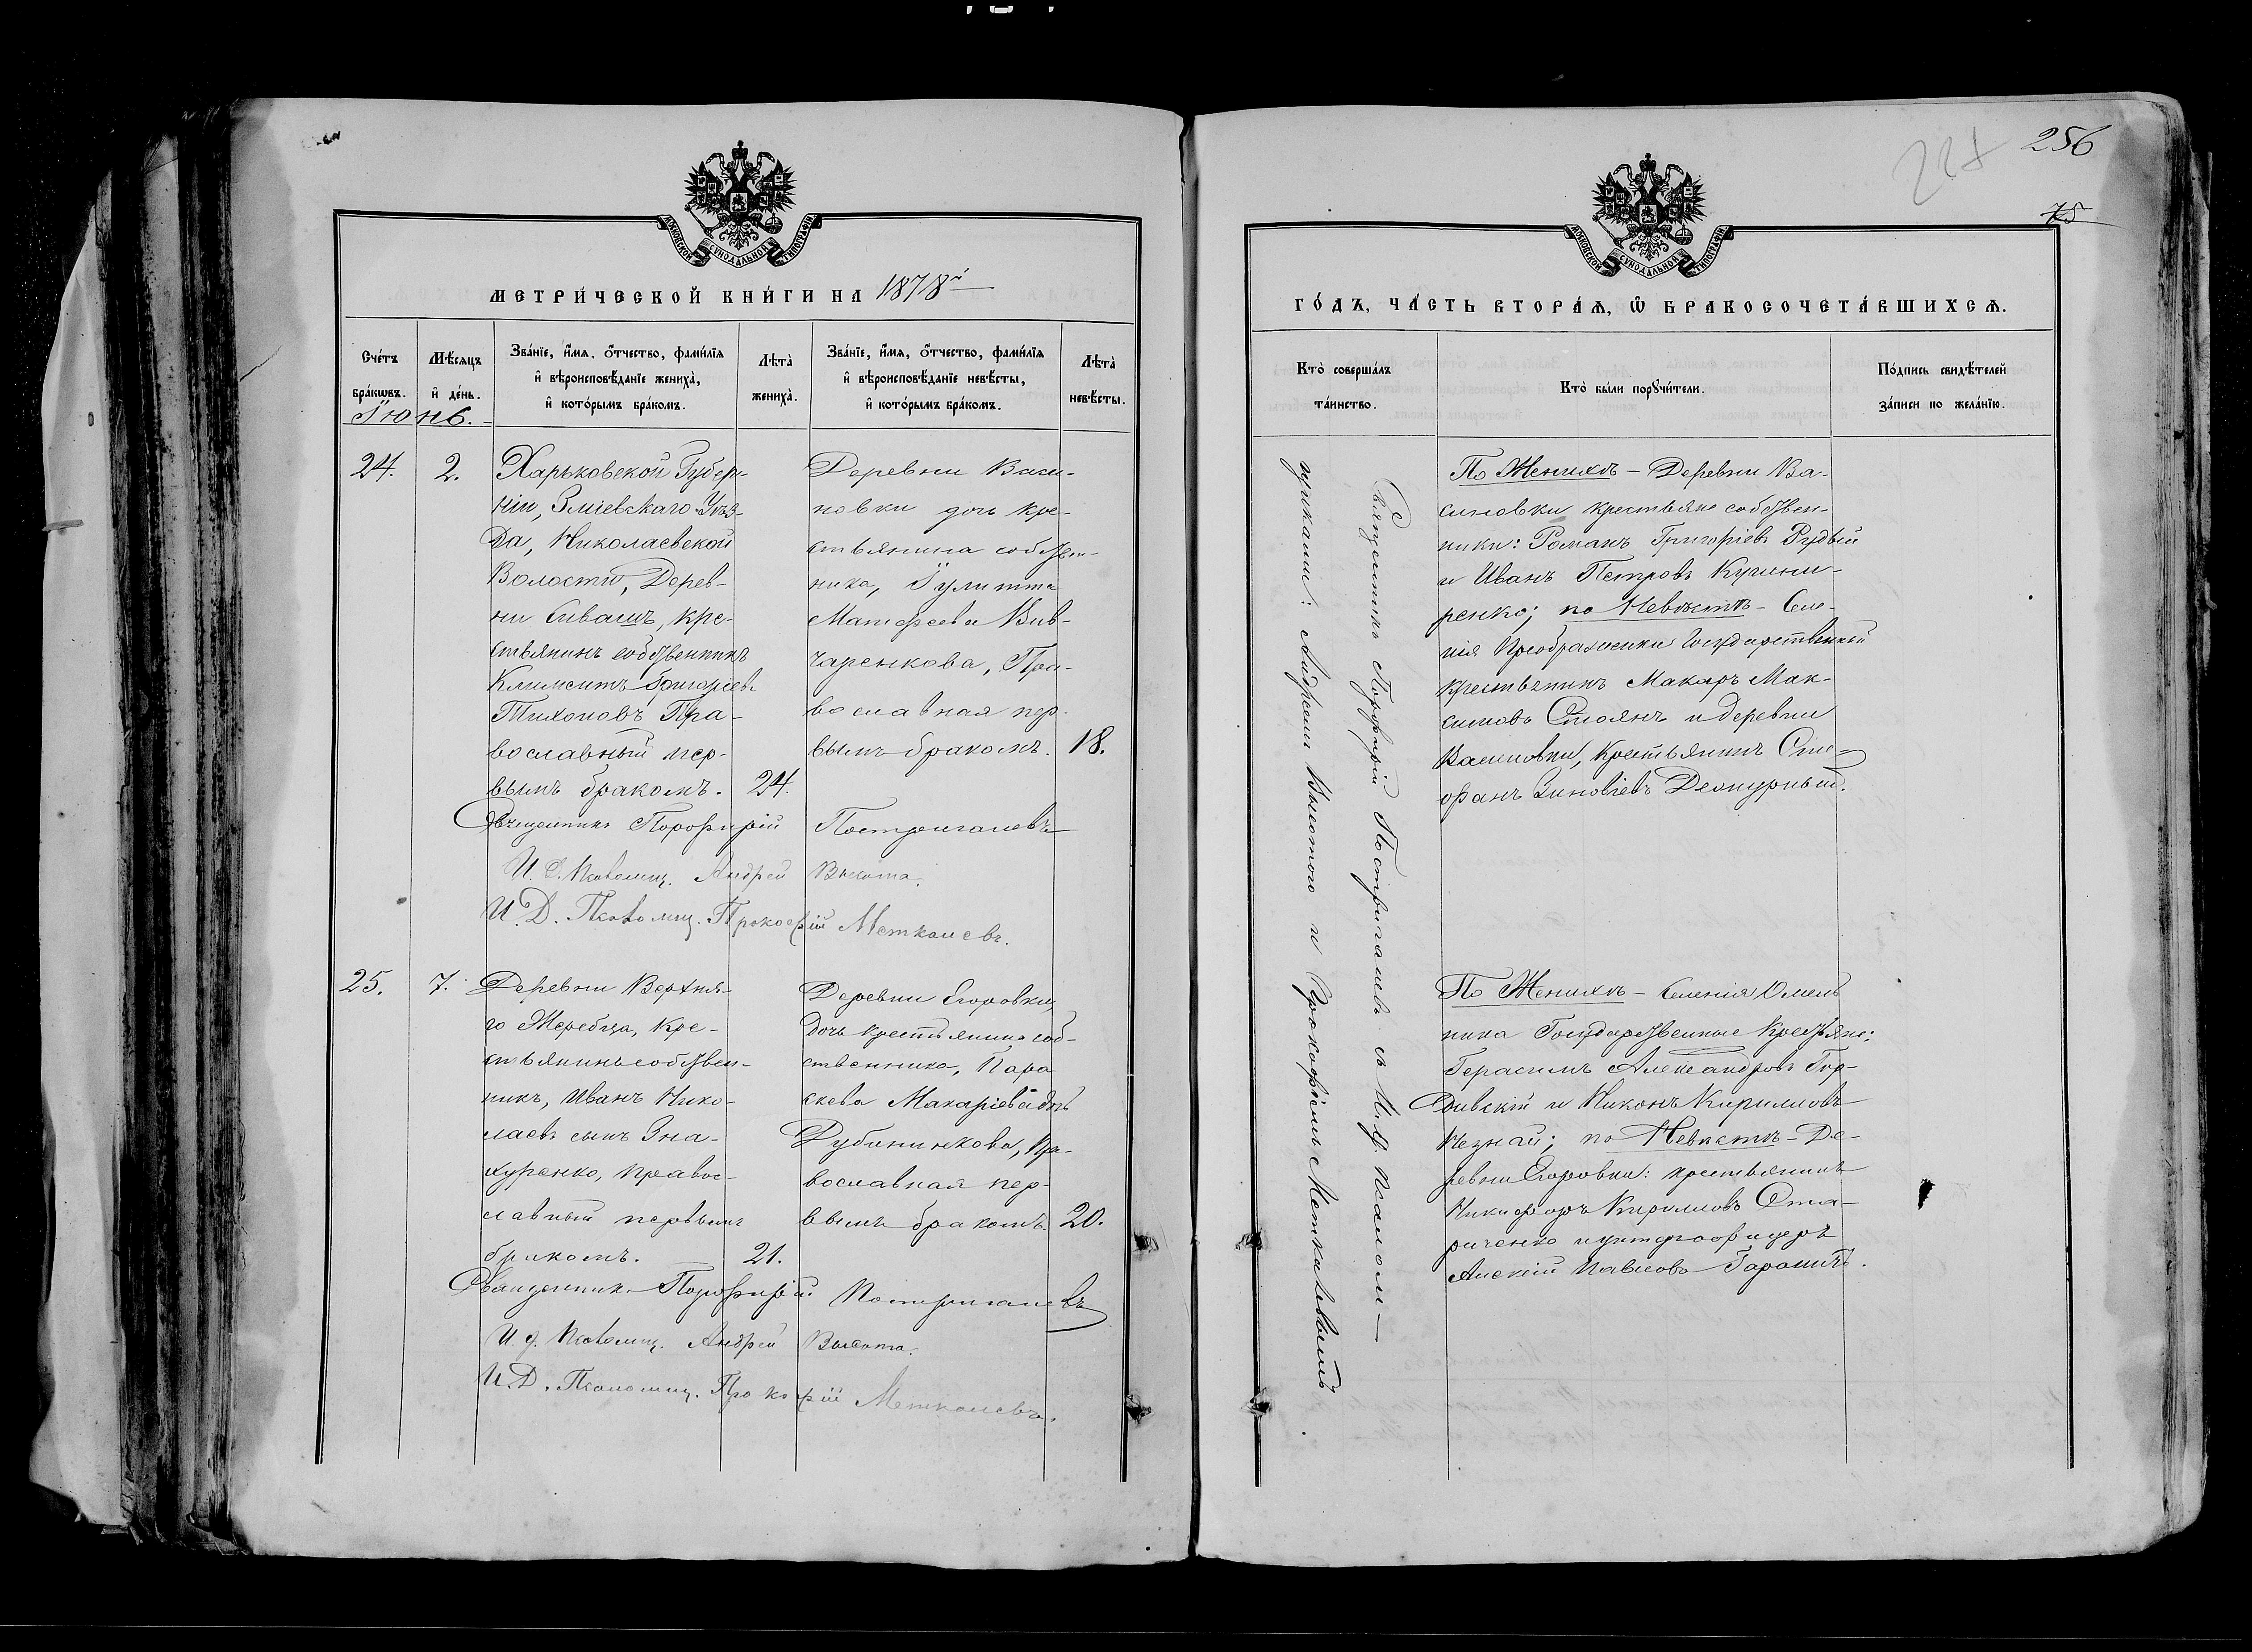 256
75
МОСКОВСКОЙ СѴНОДАЛЬНОЙ ТИПОГРАФІИ
МЕТРИ́ЧЕСКОЙ КНИ́ГИ НА 1878й
Сче́тъ бра́кѡвъ.
Мѣ́сяцъ и҆ де́нь.
Зва́нїе, и҆́мя, ѻ҆́тчество, фами́лїя
и҆ вѣроисповѣ́данїе жениха̀,
и҆ кото́рымъ бра́комъ.
Лѣ́та̀ жениха̀.
Зва́нїе, и҆́мя, ѻ҆́тчество, фами́лїя
и҆ вѣроисповѣ́данїе невѣ́сты,
и҆ кото́рымъ бра́комъ.
Лѣ́та̀ невѣ́сты.
Іюнь.
24.
2.
Харьковской Губер-
ніи, Зміевскаго Уѣз-
да, Николаевской
Волости, Дерев-
ни Сивашъ, кре-
стьянинъ собственникъ
Климентъ Григоріевъ
Тихоновъ, Пра-
вославный пер-
вымъ бракомъ.
24.
Деревни Васи-
новки дочь кре-
стьянина собствен-
ника, Іулитта
Матфеева Вив-
чаренкова, Пра-
вославная пер-
вымъ бракомъ.
18.
Священникъ Порфирій Постригалевъ
И. Д. Псаломщ. Андрей Высота.
И. Д. Псаломщ. Прокофій Меткалевъ.
25.
7.
Деревни Верхня-
го Жеребца, кре-
стьянинъ собствен-
никъ, Иванъ Нико-
лаевъ сынъ Зна-
хуренко, правос-
лавный первымъ
бракомъ.
21.
Деревни Егоровки,
дочь крестьянина соб-
ственника, Пара
скева Макаріева
Дубининкова, пра-
вославная пер-
вымъ бракомъ.
20.
Священникъ Порфирій Постригалевъ
И. д. Псаломщ. Андрей Высота.
И. Д. Псаломщ. Прокофій Меткалевъ.
МОСКОВСКОЙ СѴНОДАЛЬНОЙ ТИПОГРАФІИ
ГО́ДЪ, ЧА́СТЬ ВТОРА́Я, Ѡ҆ БРАКОСОЧЕТА́ВШИХСЯ.
Кто̀ соверша́лъ
та́инство.
Кто̀ бы́ли порꙋчи́тели.
По́дпись свидѣ́телей
за́писи по жела́нїю.
Священникъ Порфирій Постригалевъ съ И. д. Псалом-
щиками: Андреемъ Высотою и Прокофіемъ Меткалевымъ
По Женихѣ – Деревни Ва-
синовки крестьяне собствен-
ники: Романъ Григоріевъ Рудый
и Иванъ Петровъ Кучини-
ренко; по Невѣстѣ – Селе-
нія Преображенки Государственный
крестьянинъ Макаръ Мак-
симовъ Стоянъ и деревни
Васиновки, крестьянинъ Сте-
фанъ Зиновіевъ Дежурный.
По Женихѣ – Селенія Омель
ника Государственные крестьяне:
Герасимъ Александровъ Гор-
дивскій и Никонъ Кирилловъ
Незнай; по Невѣстѣ – Де-
ревни Егоровки: крестьянинъ
Никифоръ Кирилловъ Ста-
риченко и унтерофицеръ
Алексій Павловъ